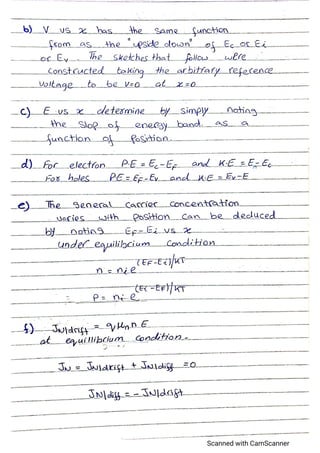 b) V vs x has the same function
from as the "upside down" of Ec or Ei
or Ev. The sketches that follow were
constructed taking the arbitrary reference
voltage to be V=0 at x=0
c) E vs x determine by simply noting
the slop of energy band as a
function of position.
d) For electron P.E = Ec-EF and K.E = E-Ec
For holes PE = EF-Ev and K.E = Ev-E
e) The general carrier concentration
varies with position can be deduced
by noting EF-Ei vs x
under equilibrium condition
n = ni e (EF-Ei)/KT
P = ni e (Ei-EF)/KT
f) JN|drift = q μn n E
at equillibrium condition.
JN = JN|drift + JN|diff = 0
JN|diff = - JN|drift
Scanned with CamScanner